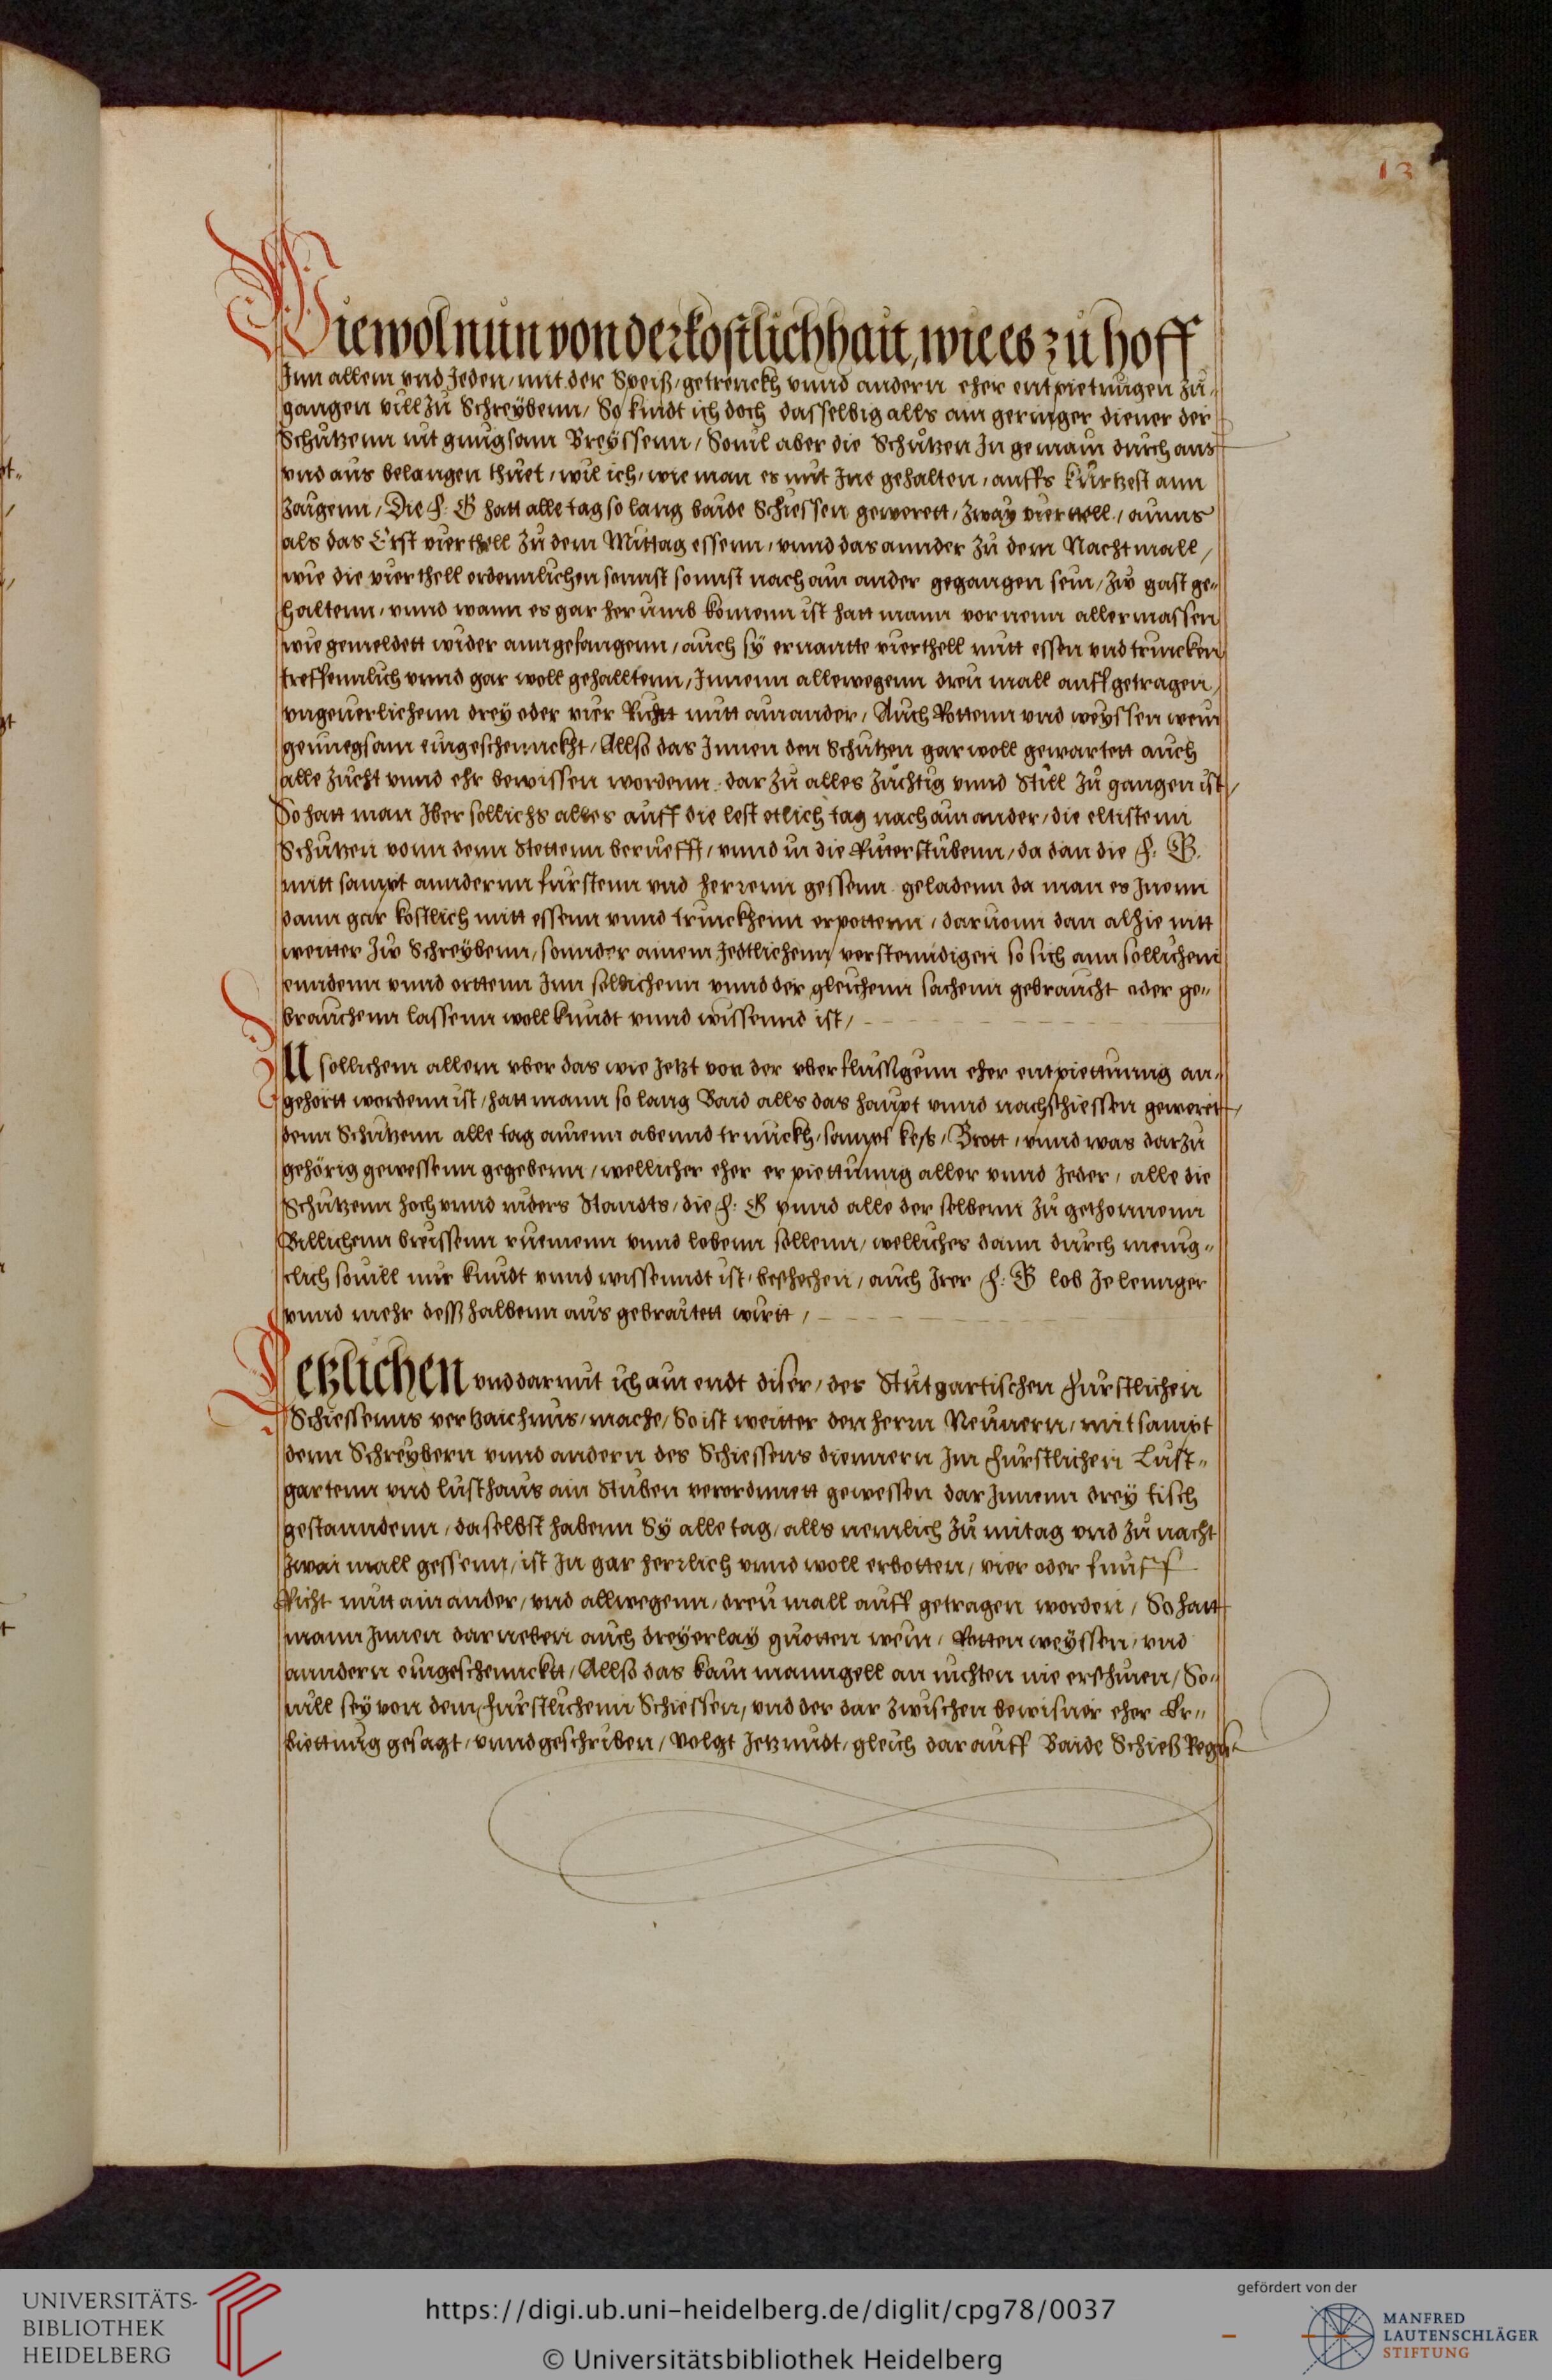 13
Wiewol nun von der kostlichhait, wie es zu hoff
Inn allem vnd Jeden, mit der Speiß, getrenckh vnnd andern eher entpietungen zu¬
gangen vill zu Schreÿbenn, So kindt ich doch dasselbig alls ain geringer diener der
Schutzenn nit gnugsam Breÿssenn, Souil aber die Schutzen In gemain durch aus
vnd aus belangen thuet, wil ich, wie man es mit Ine gehalten, auffs kurtzest ann
zaigenn, Die f: G hatt alle tag so lang baide Schiessen gewerett, zwaÿ viertell, ainns
als das Erst vierthell zu dem Mittag essenn, vnnd das annder zu dem Nachtmall,
wie die vierthell ordennlichen sonnst nach ain ander gegangen sein, zw gast ge¬
haltenn, vnnd wann es gar herumb komenn ist hatt mann vornenn aller massen
wie gemeldett wider anngefangenn, auch sÿ ernantte vierthell mitt essen vnd trincken
treffennlich vnnd gar woll gehalltenn, Innenn allewegenn dreu mall auff getragen,
vngeuerlichenn dreÿ oder vier Richt mitt ainander, Auch Rottenn vnd weÿssen wein
genuegsam eingeschennckht, Allso das Innen den Schutzen gar woll gewartett auch
alle zucht vnnd ehr bewissen wordenn, dar zu alles zuchtig vnnd Still zu gangen ist,
So hatt man Iber sollichs alles auff die lest etlich tag nach ainander, die eltistenn
Schutzen vonn denn Stettenn beruefft, vnnd in die Ritterstubenn, da dan die f: G.
mitt sampt anndernn furstenn vnd herrenn gessenn geladenn da man es Inenn
dann gar kostlich mitt essenn vnnd trinckhenn erpottenn, daruonn dan alhie nitt
weitter zw Schreÿbenn, sonnder ainem Jedtlichenn verstenndigen so sich ann sollichenn
ennden vnnd orttenn Inn sollichenn vnnd der gleichenn sachenn gebraucht oder ge¬
brauchenn lassenn woll kundt vnnd wissennd ist,
ZU sollichem allem vber das wie Jetzt von der vberflussigenn eher entpiettunng an¬
gehortt wordenn ist, hatt mann so lang Baid alls das haupt vnnd nachschiessen gewerett,
denn Schutzenn alle tag ainenn abennd trunckh, sampt keß, Brott, vnnd was darzu
gehörig gewessenn gegebenn, wellicher eher erpiettunng aller vnnd Jeder, alle die
Schutzenn hoch vnnd niders Standts, die f: G vnnd alle der selbenn zu gethonnenn
Billichenn breissenn ruemenn vnnd lobenn sollenn, welliches dann durch menig¬
clich souill mir kundt vnnd wissenndt ist, beschechen, auch Irer f: G lob Je lennger
vnnd mehr deßhalbenn aus gebraitett wirtt,
Letzlichen vnd darmit ich ain endt diser, des Stutgartischen furstlichen
Schiessenns vertzaichnus, mache, So ist weitter den herrn Neunern, mit sampt
denn Schreÿbern vnnd andern des Schiessens diennern Im furstlichen Lust¬
gartenn vnd lusthaus ain Stuben verordnnett gewessen dar Innenn dreÿ tisch
gestanndenn, daselbst habenn Sÿ alle tag, alls nemlich zu mitag vnd zu nacht
zwai mall gessenn, ist In gar herrlich vnnd woll erbotten, vier oder funff
Richt mitt ainander, vnd allwegenn, dreu mall auff getragen worden, So hatt
mann Innen darneben auch dreÿerlaÿ guotten wein, Rotten weÿssen, vnd
anndern eingeschennckt, Allso das kain manngell an nichten nie erschinen, So¬
uill seÿ von dem furstlichenn Schiessen, vnd der dar zwischen bewisner eher Er¬
biettung gesagt, vnnd geschriben, Volgt Jetzundt, gleich darauff Baide Schieß Regist
UNIVERSITÄTS-
BIBLIOTHEK
HEIDELBERG
https://digi.ub.uni-heidelberg.de/diglit/cpg78/0037
© Universitätsbibliothek Heidelberg
gefördert von der
MANFRED
LAUTENSCHLÄGER
STIFTUNG